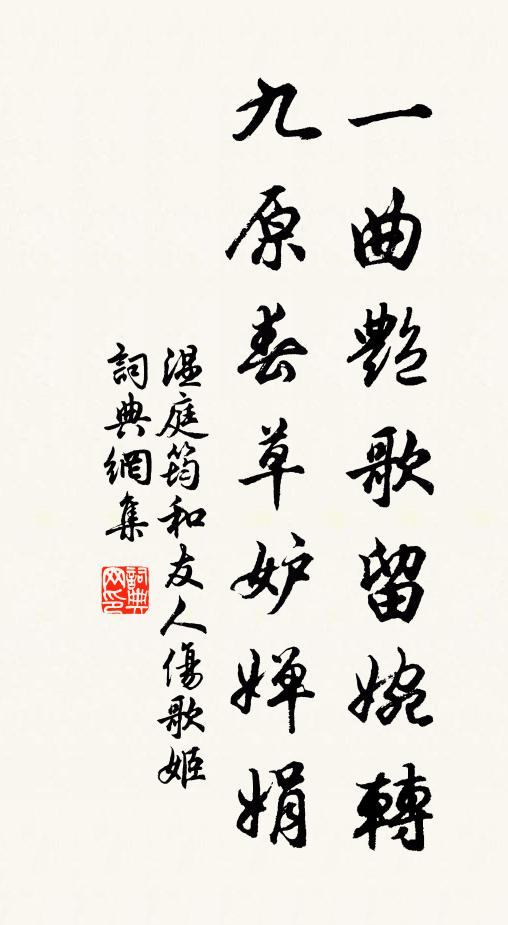 一曲艷歌留婉轉
九原春草妒嬋娟
溫庭筠和友人傷歌姬
詞典網集
詞典網印